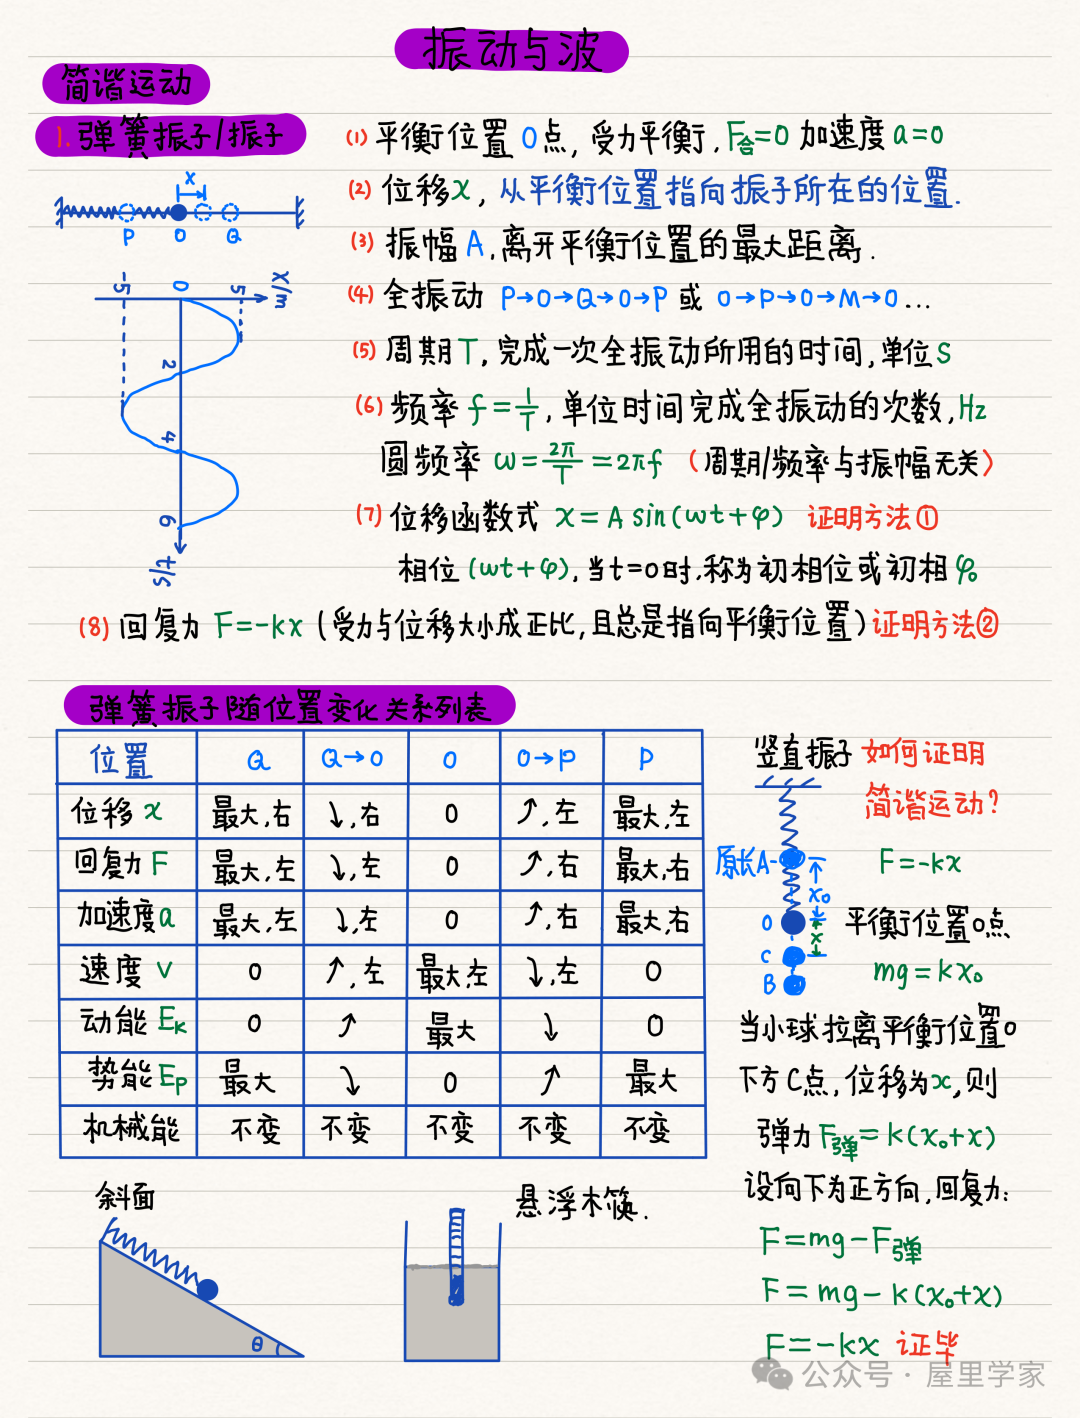 振动与波
简谐运动
1. 弹簧振子/振子
(1) 平衡位置 O点, 受力平衡, F合=0 加速度 a=0
x
P O Q
(2) 位移x, 从平衡位置指向振子所在的位置.
(3) 振幅 A, 离开平衡位置的最大距离.
-5 0 5 X/m
2
4
6
t/s
(4) 全振动 P→O→Q→O→P 或 O→P→O→M→O...
(5) 周期T, 完成一次全振动所用的时间, 单位S
(6) 频率 f=1/T, 单位时间完成全振动的次数, Hz
圆频率 ω=2π/T=2πf (周期/频率与振幅无关)
(7) 位移函数式 x=A sin(ωt+φ) 证明方法①
相位 (ωt+φ), 当t=0时, 称为初相位或初相φ₀
(8) 回复力 F=-kx (受力与位移大小成正比, 且总是指向平衡位置) 证明方法②
弹簧振子随位置变化关系列表
位置 Q Q→O O O→P P
位移 x 最大,右 ↘,右 0 ↗,左 最大,左
回复力 F 最大,左 ↘,左 0 ↗,右 最大,右
加速度a 最大,左 ↘,左 0 ↗,右 最大,右
速度 v 0 ↗,左 最大,左 ↘,左 0
动能 Ek 0 ↗ 最大 ↘ 0
势能 Ep 最大 ↘ 0 ↗ 最大
机械能 不变 不变 不变 不变 不变
竖直振子 如何证明
简谐运动?
原长A
x₀
O
x
C
B
F=-kx
平衡位置O点
mg=kx₀
当小球拉离平衡位置O
下方C点, 位移为x, 则
弹力 F弹=k(x₀+x)
设向下为正方向, 回复力:
F=mg-F弹
F=mg-k(x₀+x)
F=-kx 证毕
斜面
θ
悬浮木筷.
公众号·屋里学家